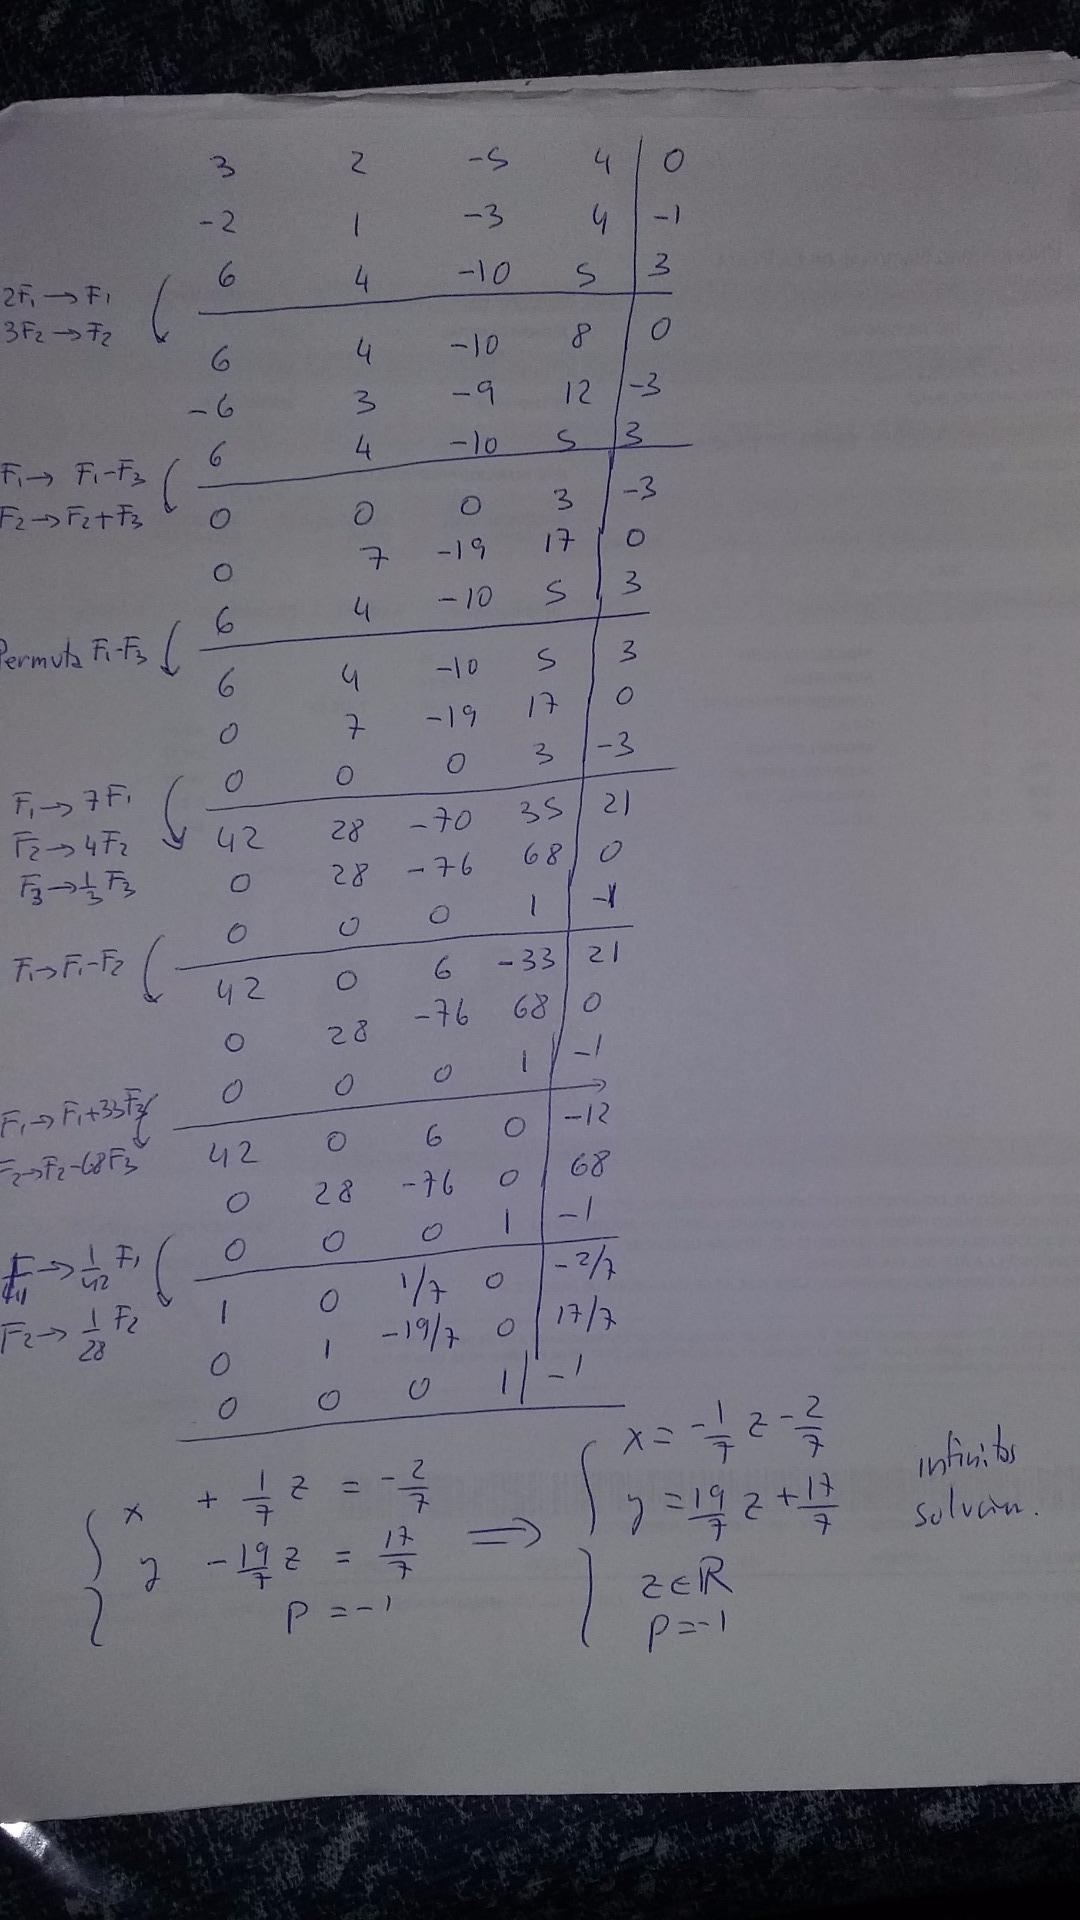 3 2 -5 4 | 0
-2 1 -3 4 | -1
6 4 -10 5 | 3
2F₁ → F₁
3F₂ → F₂
6 4 -10 8 | 0
-6 3 -9 12 | -3
6 4 -10 5 | 3
F₁ → F₁-F₃
F₂ → F₂+F₃
0 0 0 3 | -3
0 7 -19 17 | 0
6 4 -10 5 | 3
Permuta F₁-F₃
6 4 -10 5 | 3
0 7 -19 17 | 0
0 0 0 3 | -3
F₁ → 7F₁
F₂ → 4F₂
F₃ → 1/3 F₃
42 28 -70 35 | 21
0 28 -76 68 | 0
0 0 0 1 | -1
F₁ → F₁-F₂
42 0 6 -33 | 21
0 28 -76 68 | 0
0 0 0 1 | -1
F₁ → F₁+33F₃
F₂ → F₂-68F₃
42 0 6 0 | -12
0 28 -76 0 | 68
0 0 0 1 | -1
F₁ → 1/42 F₁
F₂ → 1/28 F₂
1 0 1/7 0 | -2/7
0 1 -19/7 0 | 17/7
0 0 0 1 | -1
x + 1/7 z = -2/7
y - 19/7 z = 17/7
p = -1
⟹
x = -1/7 z - 2/7
y = 19/7 z + 17/7
z ∈ ℝ
p = -1
infinitas
solucion.